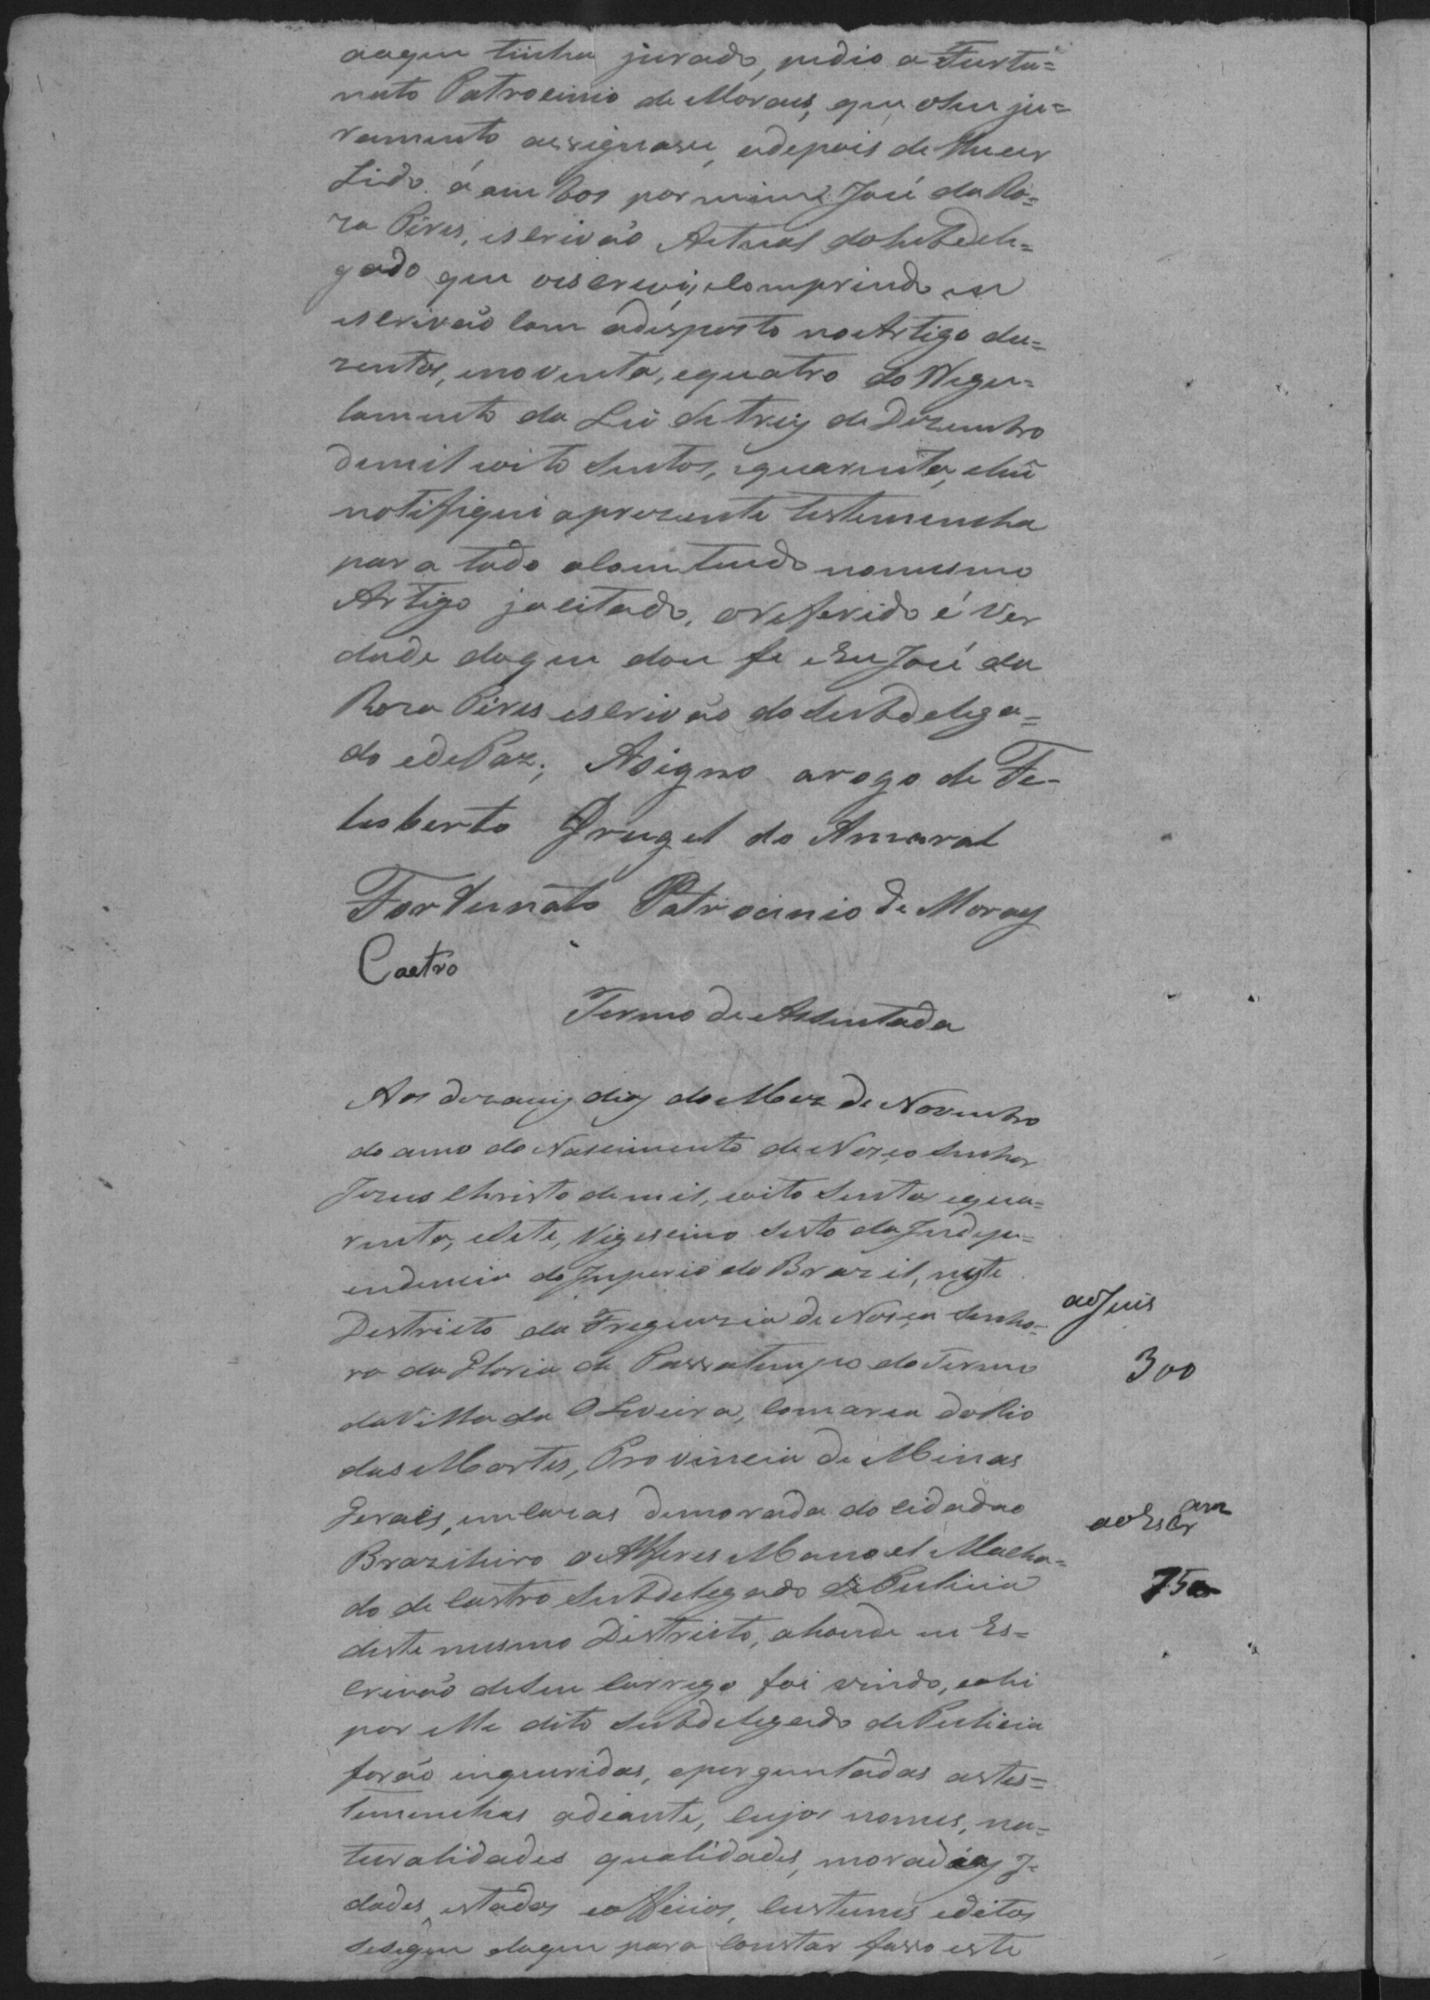 aoque tinha jurado, pedio a Furtu=
nato Patrocinio de Moraes, que o seu ju=
ramento assignase, e depois de lhe ser
Lido á ambos por mim José da Ro=
za Pires, escrivão Actual do Subdele=
gado que o escrevi, e comprindo eu
escrivão com o disposto no Artigo du=
zentos, e noventa, e quatro do Regu=
lamento da Lei de trez de Dezembro
de mil e oito sentos, e quarenta, e hū
notifiquei a prezente testemunha
para todo o comteudo no mesmo
Artigo ja citado, o referido é Ver
dade do que dou fe e Eu José da
Roza Pires escrivão do Subdelega=
do e de Paz; Asigno arogo de Fe-
lisberto Grugel do Amaral
Fortunato Patrocinio de Moraes
Castro
Termo de Assentada
Aos dias do Mez de Novembro
do anno do Nascimento de Noso Senhor
Jezus Christo de mil, e oito sentos e qua=
renta, e sete, Vigesimo Sesto da Indepe=
endencia do Imperio do Brazil, neste
Destricto da Freguezia de Nosa Senho=
ra da Gloria de Passatempo do Termo
da Villa da Oliveira, Comarca do Rio
das Mortes, Provincia de Minas
Geraes, em cazas de morada do cidadao
Brazileiro o Alferes Manoel Macha=
do de Castro Subdelegado de Pulicia
deste mesmo Destricto, ahonde eu Es=
crivão de seu Carrego foi vindo, e ahi
por elle dito Subdelegado de Pulicia
forão inqueridas, e perguntadas as tes=
temunhas adiante, cujos nomes, na=
turalidades qualidades, moradas, I=
dades, estados e officios, custumes e ditos
se segue do que para constar fasso este
ao Juis
300
ao Escram
750